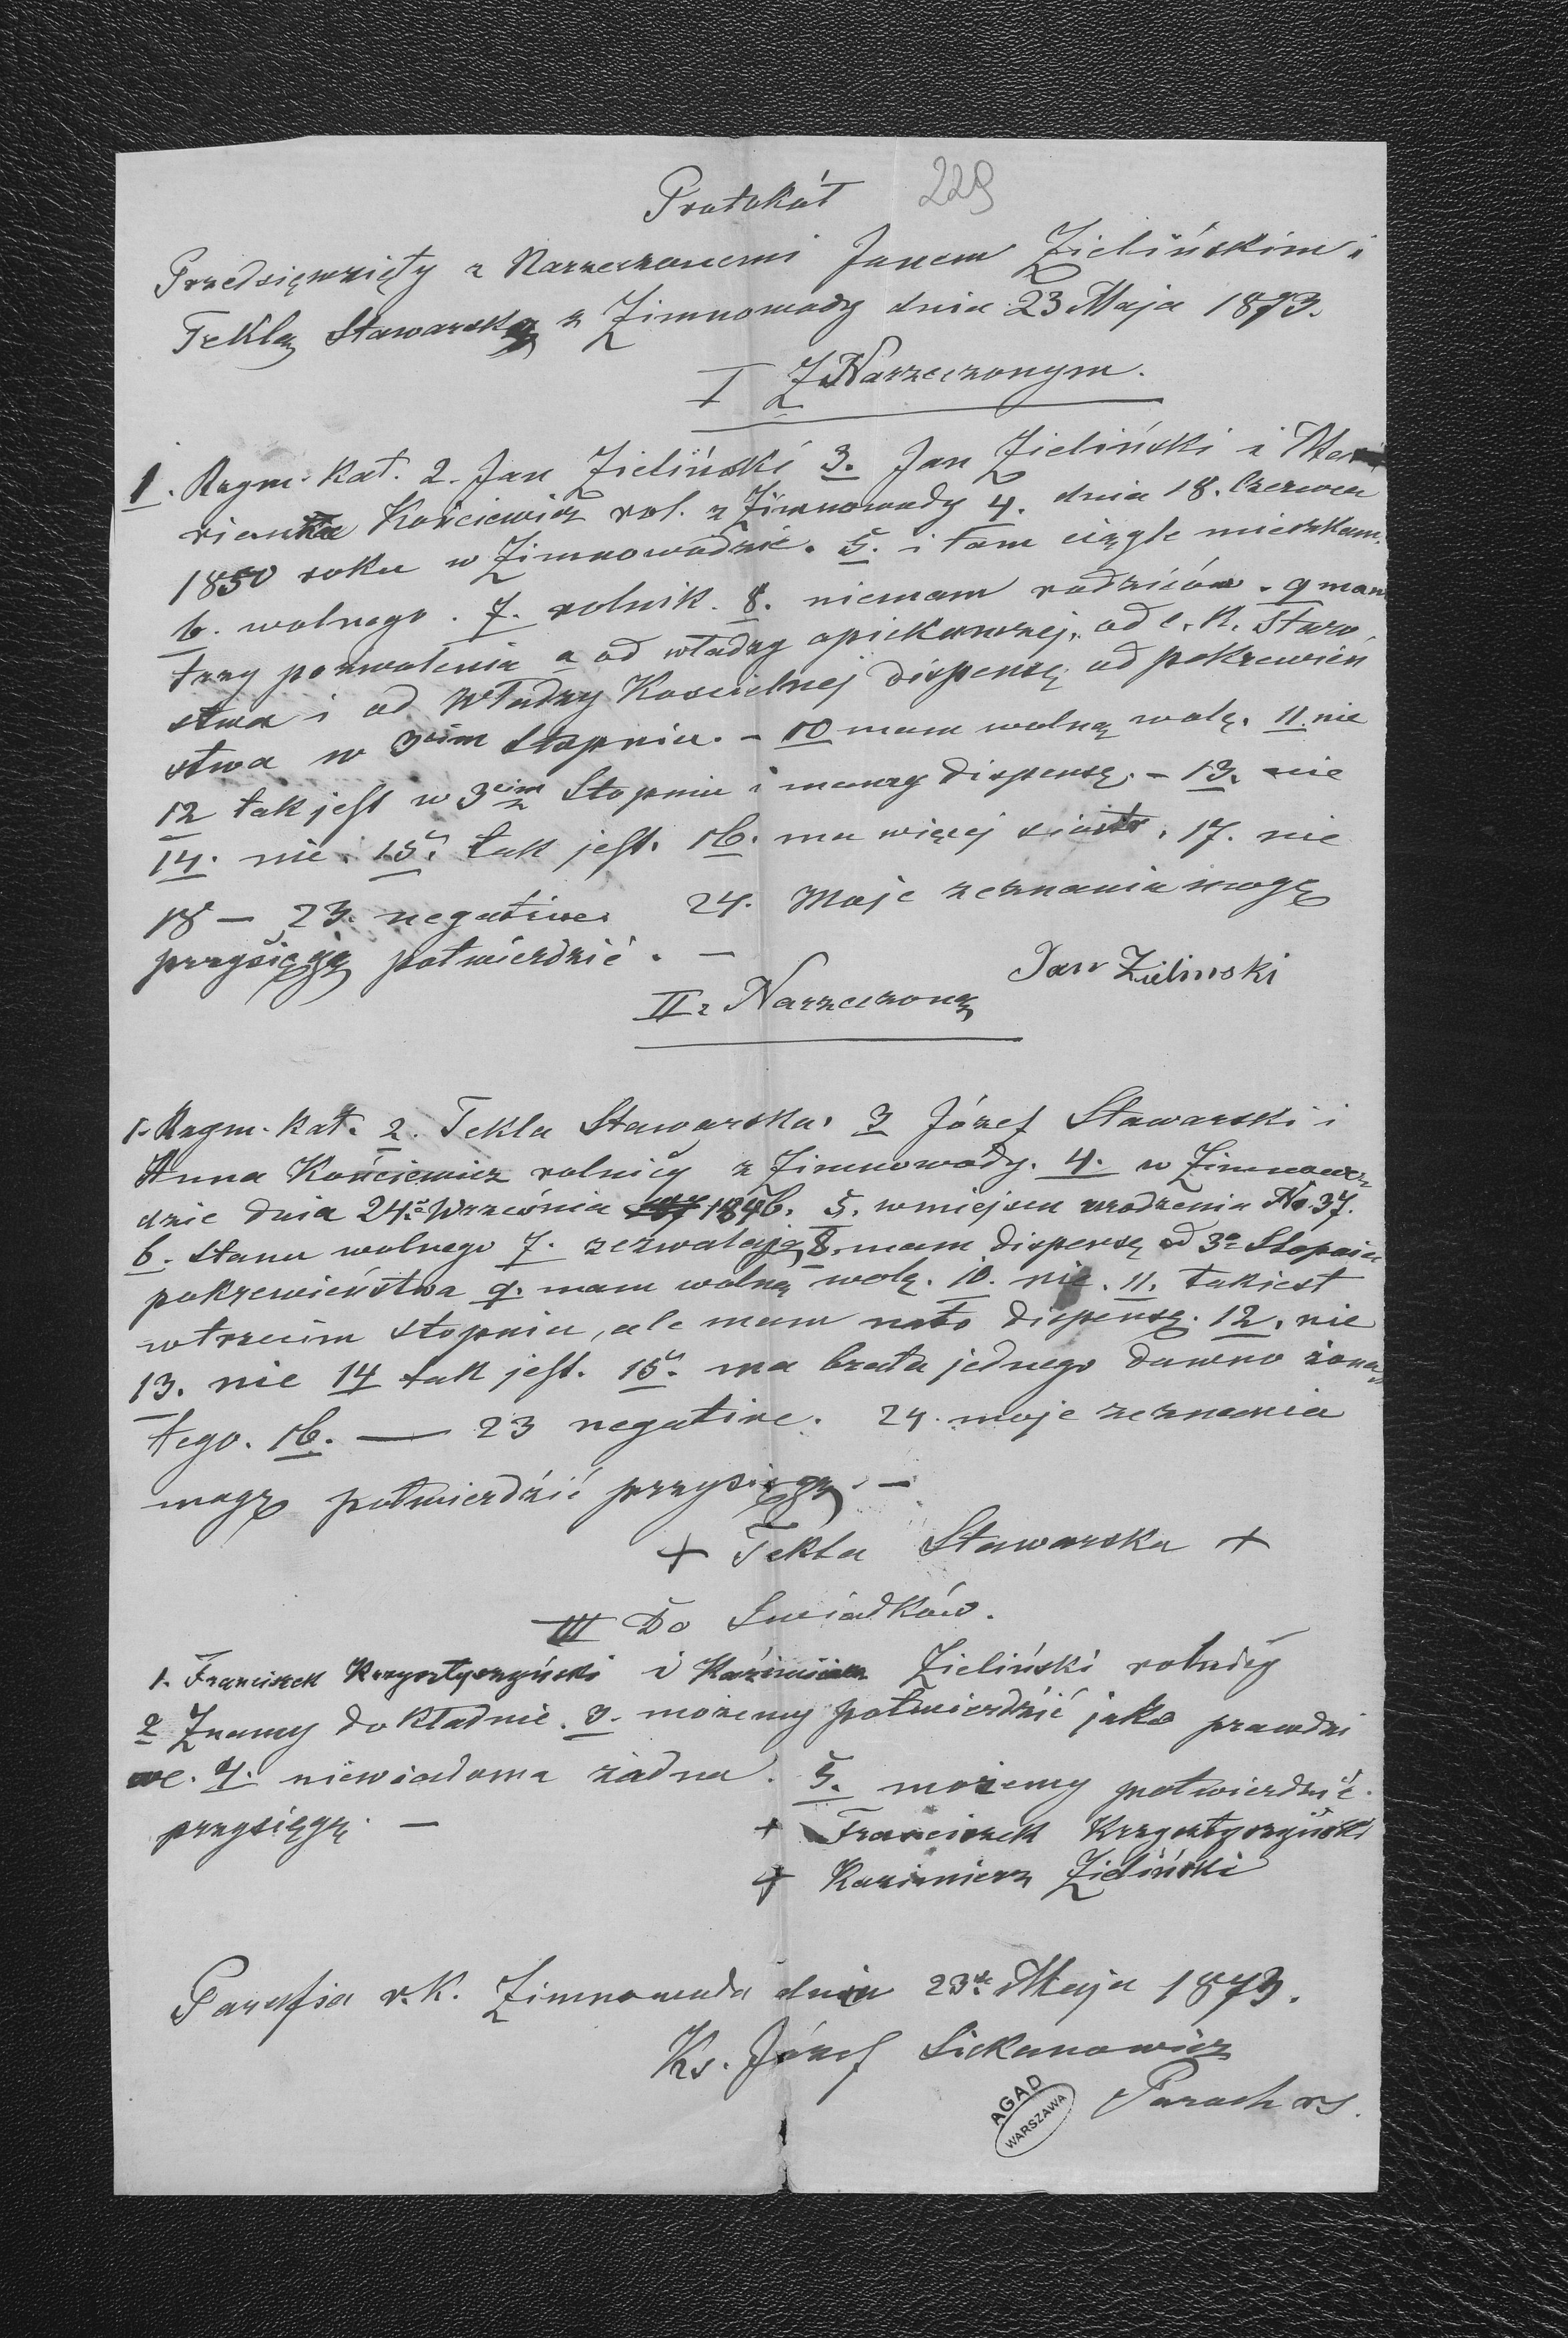 Protokół 229
Przedsięwzięty z Narzeczonemi Janem Zielińskim i
Teklą Stawarską z Zimnowody dnia 23 Maja 1873.
I Z Narzeczonym.
1. Rzym. kat. 2. Jan Zieliński 3. Jan Zieliński i
Kościewicz rol. z Zimnowody 4. dnia 18. Czerwca
1850 roku w Zimnowodzie. 5. i tam ciągle mieszkam.
6. wolnego. 7. rolnik. 8. niemam rodziców. 9 mam
trzy pozwolenia a od władzy opiekuńczej, od c. k. Staro
stwa i od Władzy Kościelnej dispensę od pokrewień
stwa w 3cim Stopniu. – 10 mam wolną wolę. 11. nie
12 tak jest w 3cim Stopniu i mamy dispensę. – 13. nie
14. nie. 15. tak jest. 16. ma więcej siostr. 17. nie
18 – 23. negative. 24. Moje zeznania mogę
przysięgą potwierdzić. –
Jan Zielinski
II z Narzeczoną
1. Rzym. kat. 2. Tekla Stawarska. 3 Józef Stawarski i
Anna Kościewicz rolnicy z Zimnowody. 4. w Zimnowo-
dzie dnia 24go Września 1846. 5. w miejscu urodzenia No. 37.
6. Stanu wolnego 7. zezwalają 8. mam dispensę od 3o Stopnia
pokrewieństwa 9. mam wolną wolę. 10. nie. 11. tak jest
w trzecim stopniu, ale mam na to dispensę. 12. nie
13. nie 14 tak jest. 15. ma brata jednego dawno żona-
tego. 16. — 23 negative. 24. moje zeznania
mogę potwierdzić przysięgą. –
+ Tekla Stawarska +
III Do Swiadków.
1. Franciszek Krzysztyczyński i Kazimierz Zieliński rolnicy
2 Znamy dokładnie. 3. możemy potwierdzić jako prawdzi
we. 4. niewiadoma żadna. 5. możemy potwierdzić
przysięgą. –
+ Franciszek Krzysztyczyński
+ Kazimierz Zieliński
Parafia r. k. Zimnowoda dnia 23go Maja 1873.
Ks. Józef Siekanowicz
Paroch
AGAD
WARSZAWA